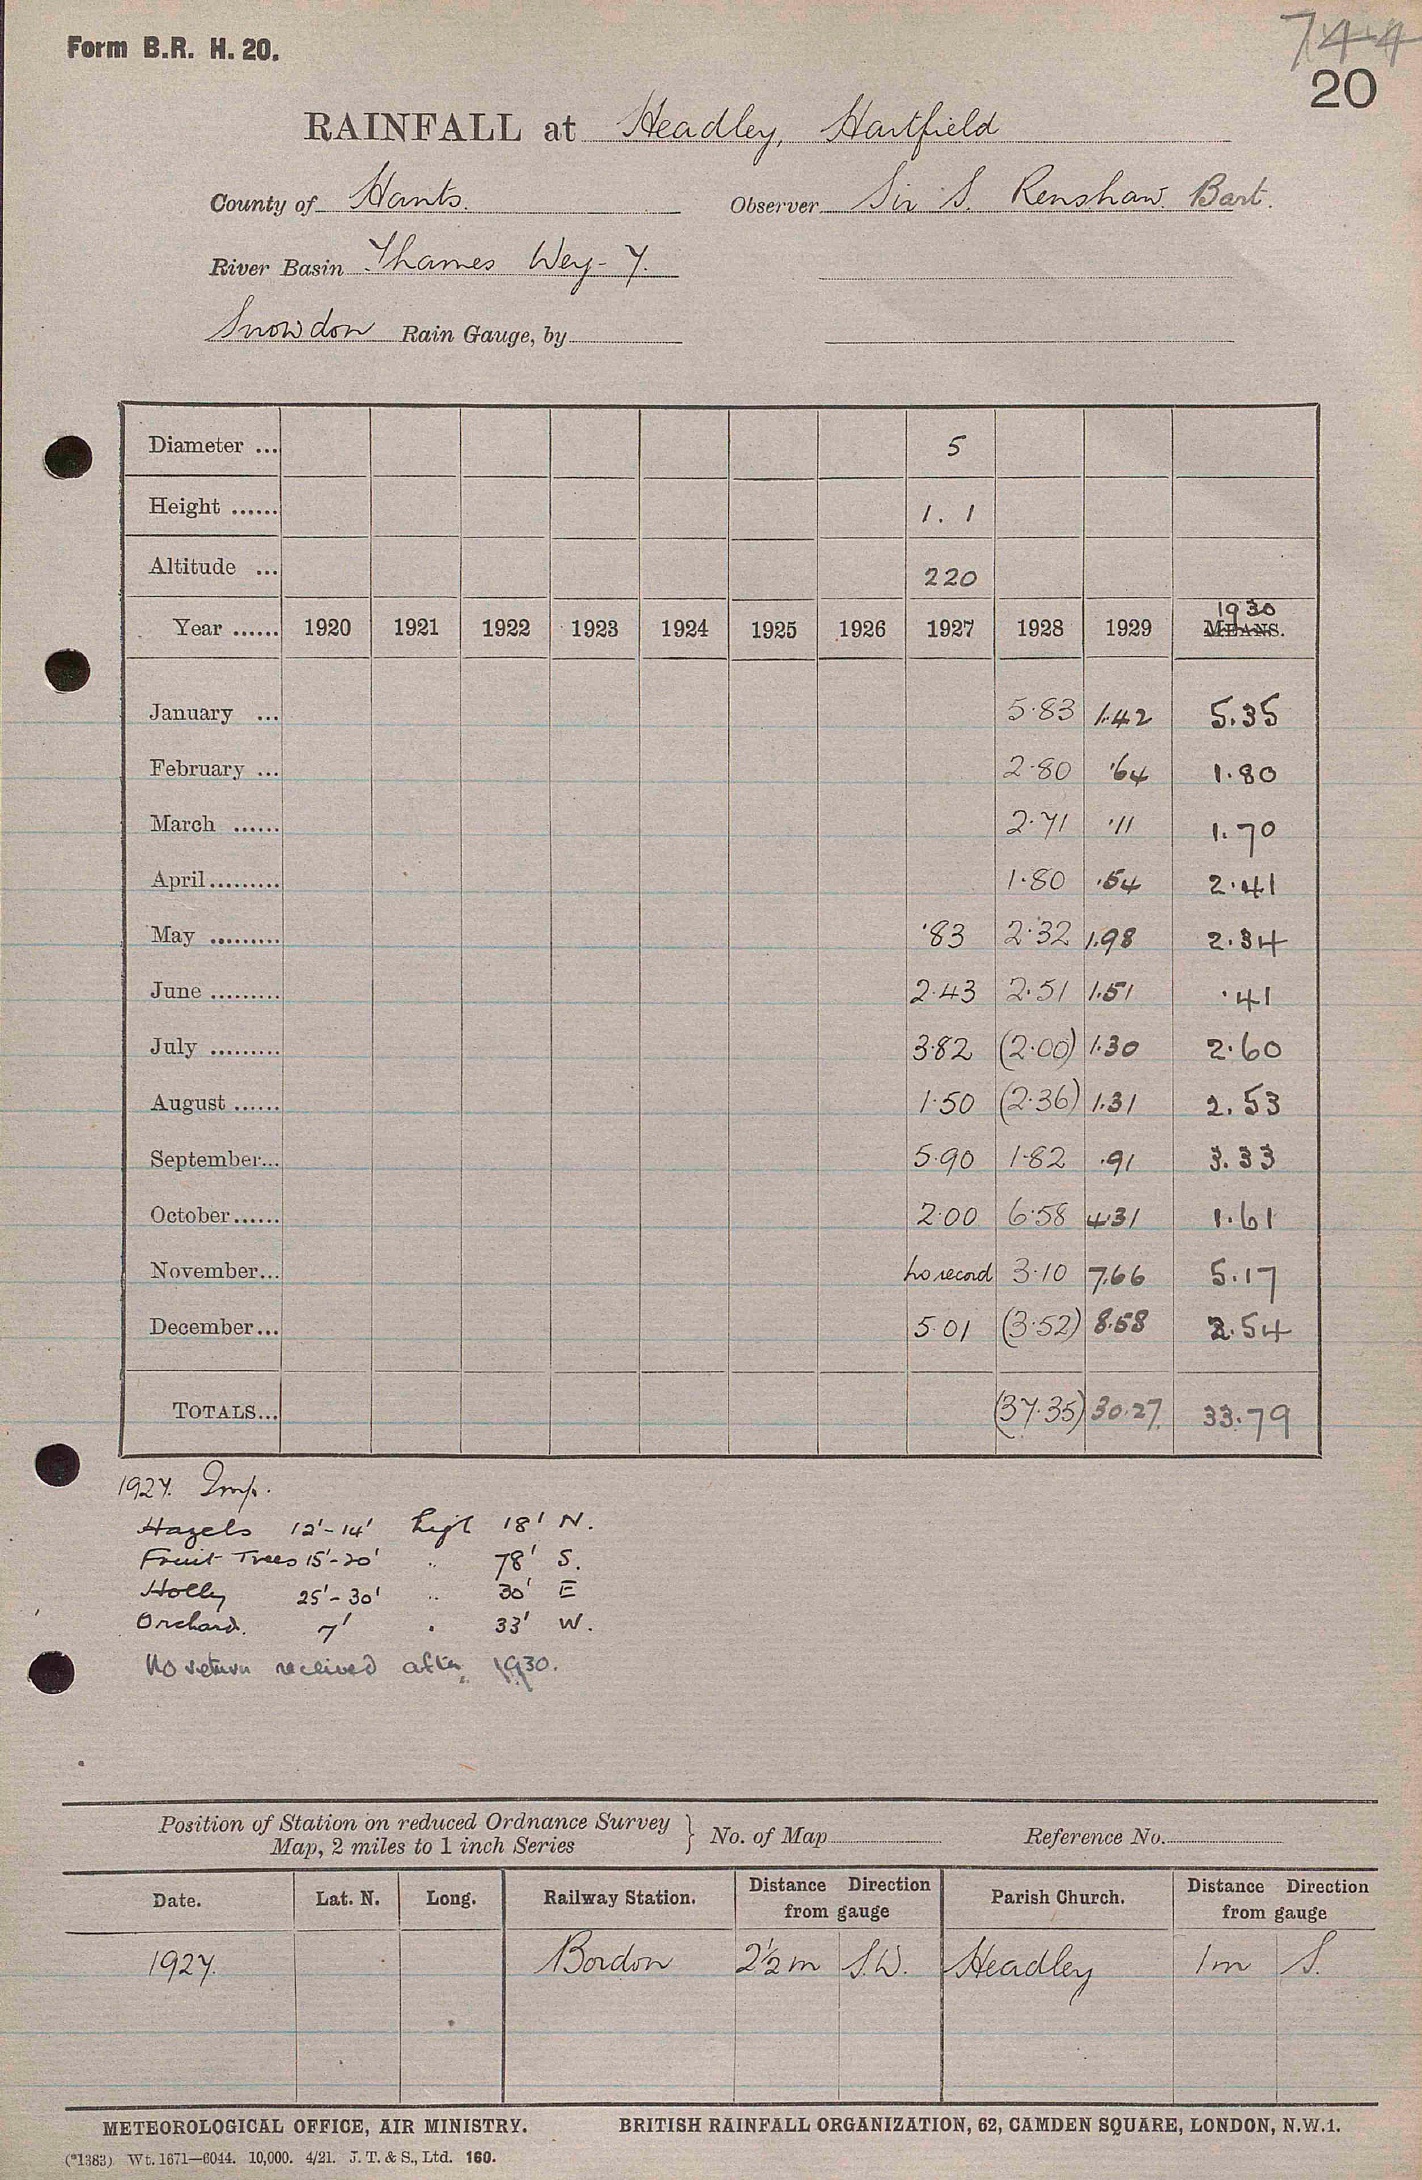 Form B.R. H. 20.
744
20
RAINFALL at Headley, Hartfield
County of Hants. Observer Sir S. Renshaw. Bart.
River Basin Thames Wey - 7.
Snowdon Rain Gauge, by
Diameter ... 5
Height ...... 1. 1
Altitude ... 220
1930
Year ...... 1920 1921 1922 1923 1924 1925 1926 1927 1928 1929 MEANS.
January ... 5.83 1.42 5.35
February ... 2.80 .64 1.80
March ...... 2.71 .11 1.70
April ......... 1.80 .54 2.41
May ......... .83 2.32 1.98 2.34
June ......... 2.43 2.51 1.51 .41
July ......... 3.82 (2.00) 1.30 2.60
August ...... 1.50 (2.36) 1.31 2.53
September... 5.90 1.82 .91 3.33
October...... 2.00 6.58 4.31 1.61
November... no record 3.10 7.66 5.17
December... 5.01 (3.52) 8.58 2.54
TOTALS... (37.35) 30.27 33.79
1927. Imp.
Hazels 12'-14' high 18' N.
Fruit Trees 15'-20' " 78' S.
Holly 25'-30' " 30' E
Orchard. 7' " 33' W.
No return received after 1930.
Position of Station on reduced Ordnance Survey
Map, 2 miles to 1 inch Series } No. of Map Reference No.
Date. Lat. N. Long. Railway Station. Distance Direction from gauge Parish Church. Distance Direction from gauge
1927. Bordon 2½ m S.W. Headley 1 m S.
METEOROLOGICAL OFFICE, AIR MINISTRY. BRITISH RAINFALL ORGANIZATION, 62, CAMDEN SQUARE, LONDON, N.W.1.
(*1383) Wt. 1671—6044. 10,000. 4/21. J. T. & S., Ltd. 160.